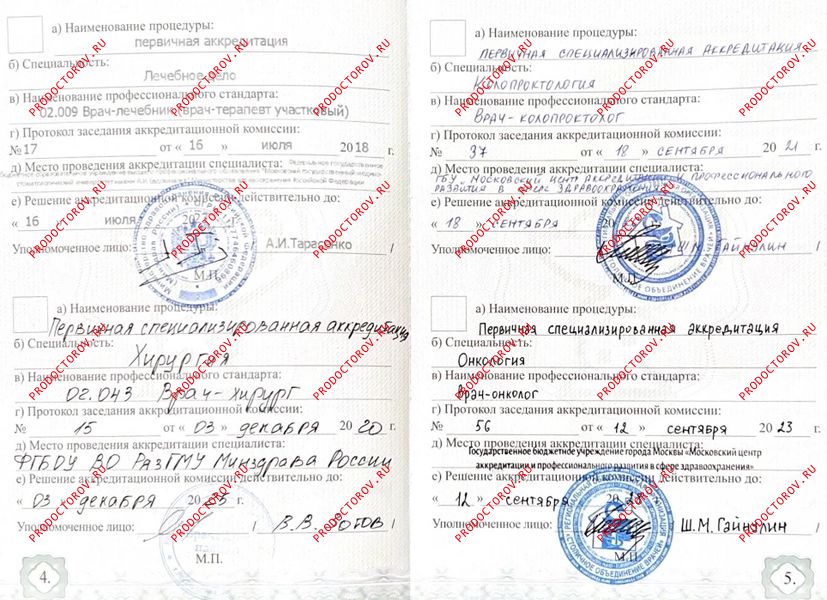 а) Наименование процедуры:
первичная аккредитация
б) Специальность:
Лечебное дело
в) Наименование профессионального стандарта:
02.009 Врач-лечебник (врач-терапевт участковый)
г) Протокол заседания аккредитационной комиссии:
№17 от « 16 » июля 2018 г.
д) Место проведения аккредитации специалиста:
е) Решение аккредитационной комиссии действительно до:
« 16 июля
Уполномоченное лицо: А.И.Тарасенко /
М.П.
а) Наименование процедуры:
Первичная специализированная аккредитация
б) Специальность:
Хирургия
в) Наименование профессионального стандарта:
02.043 Врач-хирург
г) Протокол заседания аккредитационной комиссии:
№ 15 от « 03 » декабря 2020 г.
д) Место проведения аккредитации специалиста:
ФГБОУ ВО РязГМУ Минздрава России
е) Решение аккредитационной комиссии действительно до:
« 03 » декабря 20 г.
Уполномоченное лицо: / В.В. /
М.П.
4.
а) Наименование процедуры:
ПЕРВИЧНАЯ СПЕЦИАЛИЗИРОВАННАЯ АККРЕДИТАЦИЯ
б) Специальность:
КОЛОПРОКТОЛОГИЯ
в) Наименование профессионального стандарта:
ВРАЧ-КОЛОПРОКТОЛОГ
г) Протокол заседания аккредитационной комиссии:
№ 37 от « 18 » СЕНТЯБРЯ 20 21 г.
д) Место проведения аккредитации специалиста:
ГБУ „МОСКОВСКИЙ ЦЕНТР АККРЕДИТАЦИИ И ПРОФЕССИОНАЛЬНОГО
РАЗВИТИЯ В СФЕРЕ ЗДРАВООХРАНЕНИЯ"
е) Решение аккредитационной комиссии действительно до:
« 18 » СЕНТЯБРЯ 20
Уполномоченное лицо: Ш.М. ГАЙНУЛИН /
М.П.
а) Наименование процедуры:
Первичная специализированная аккредитация
б) Специальность:
Онкология
в) Наименование профессионального стандарта:
Врач-онколог
г) Протокол заседания аккредитационной комиссии:
№ 56 от « 12 » сентября 20 23 г.
д) Место проведения аккредитации специалиста:
Государственное бюджетное учреждение города Москвы «Московский центр
аккредитации и профессионального развития в сфере здравоохранения»
е) Решение аккредитационной комиссии действительно до:
« 12 » сентября 20
Уполномоченное лицо: Ш.М. Гайнулин /
М.П.
5.
PRODOCTOROV.RU